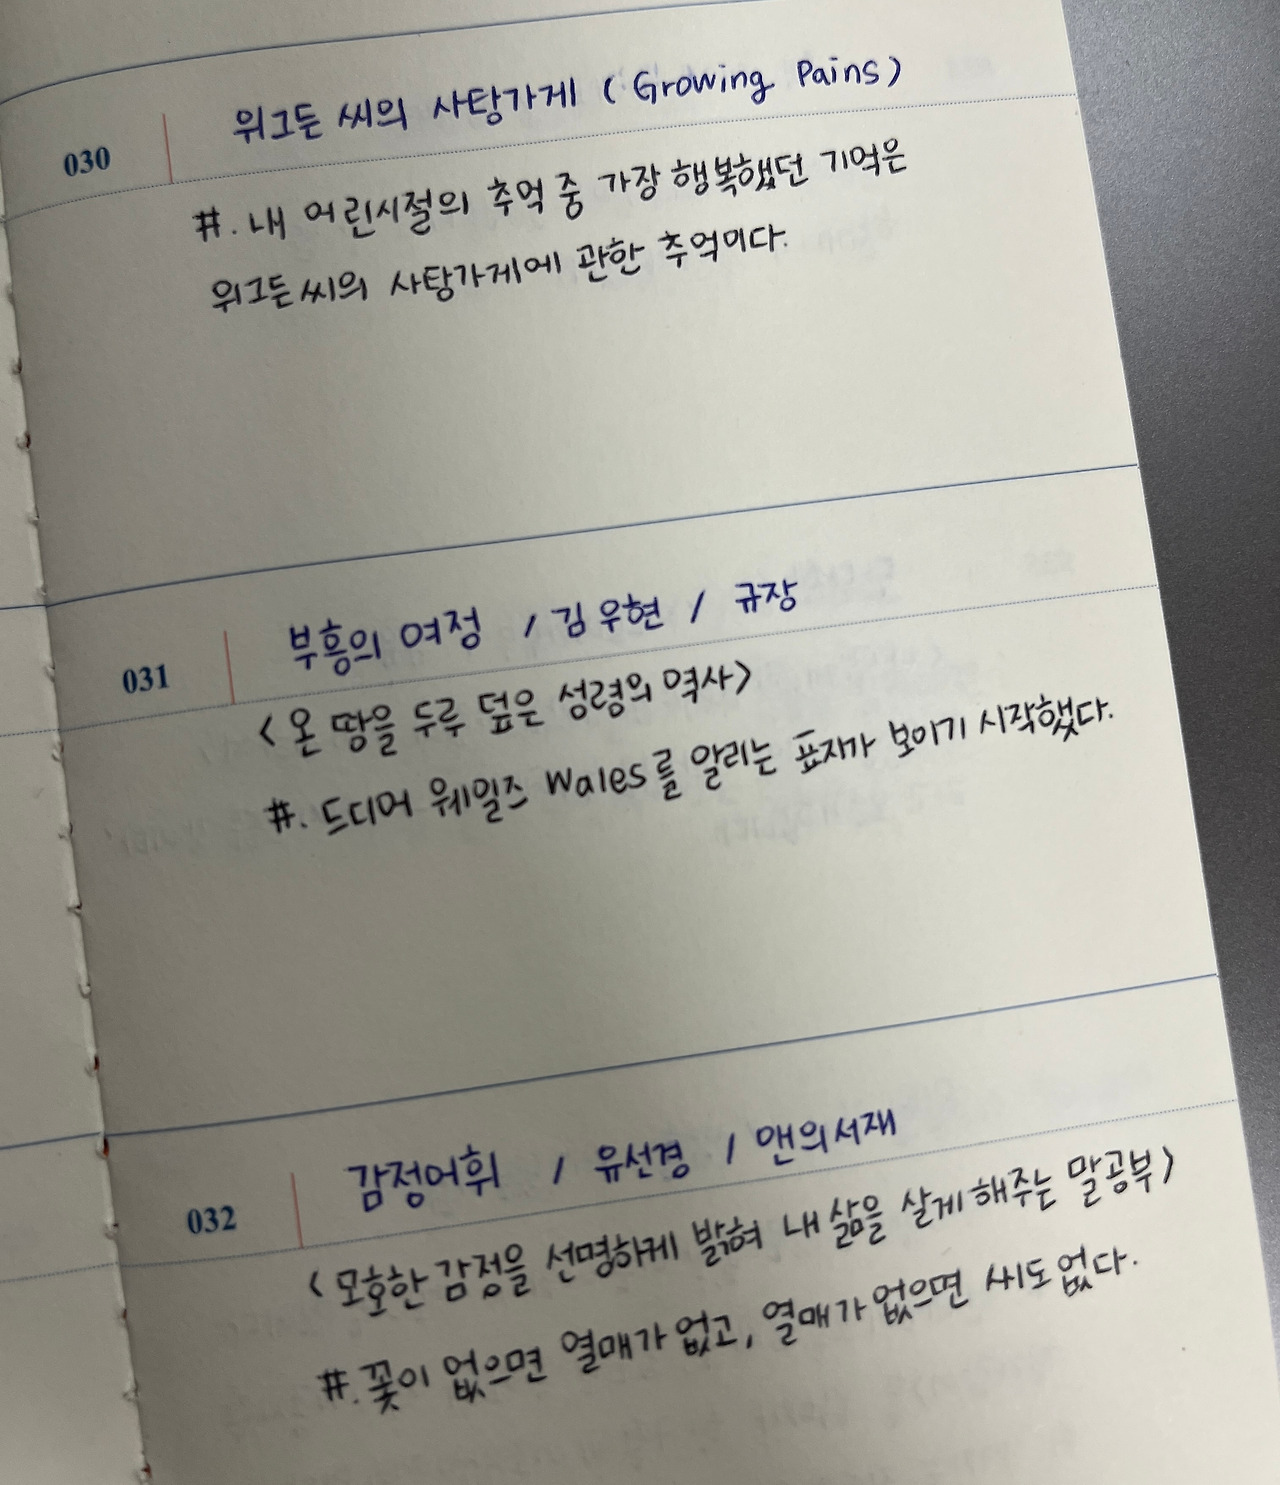 030 위그든 씨의 사탕가게 (Growing Pains)
#. 내 어린시절의 추억 중 가장 행복했던 기억은
위그든 씨의 사탕가게에 관한 추억이다.
031 부흥의 여정 / 김우현 / 규장
<온 땅을 두루 덮은 성령의 역사>
#. 드디어 웨일즈 Wales를 알리는 표지가 보이기 시작했다.
032 감정어휘 / 유선경 / 앤의서재
<모호한 감정을 선명하게 밝혀 내 삶을 살게 해주는 말공부>
#. 꽃이 없으면 열매가 없고, 열매가 없으면 씨도 없다.